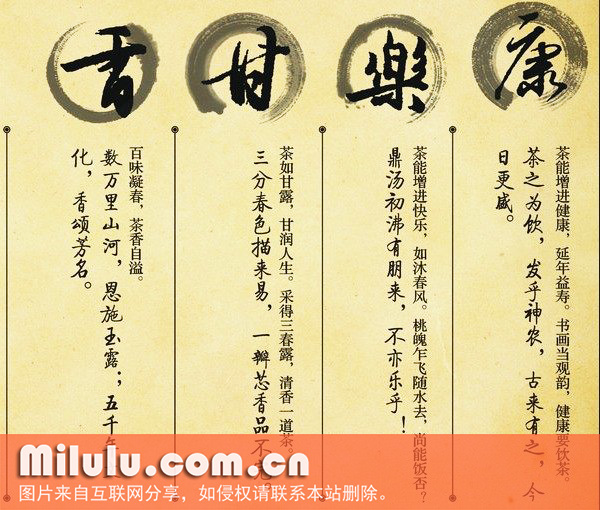 康
茶能增进健康，延年益寿。书画当观韵，健康要饮茶。
茶之为饮，发乎神农，古来有之，今
日更盛。
樂
茶能增进快乐，如沐春风。桃魄乍飞随水去，尚能饭否？
鼎汤初沸有朋来，不亦乐乎！
甘
茶如甘露，甘润人生。采得三春露，清香一道茶。
三分春色描来易，一瓣芯香品不
香
百味凝春，茶香自溢。
数万里山河，恩施玉露；五千年
化，香颂芳名。
Milulu.com.cn
图片来自互联网分享，如侵权请联系本站删除。